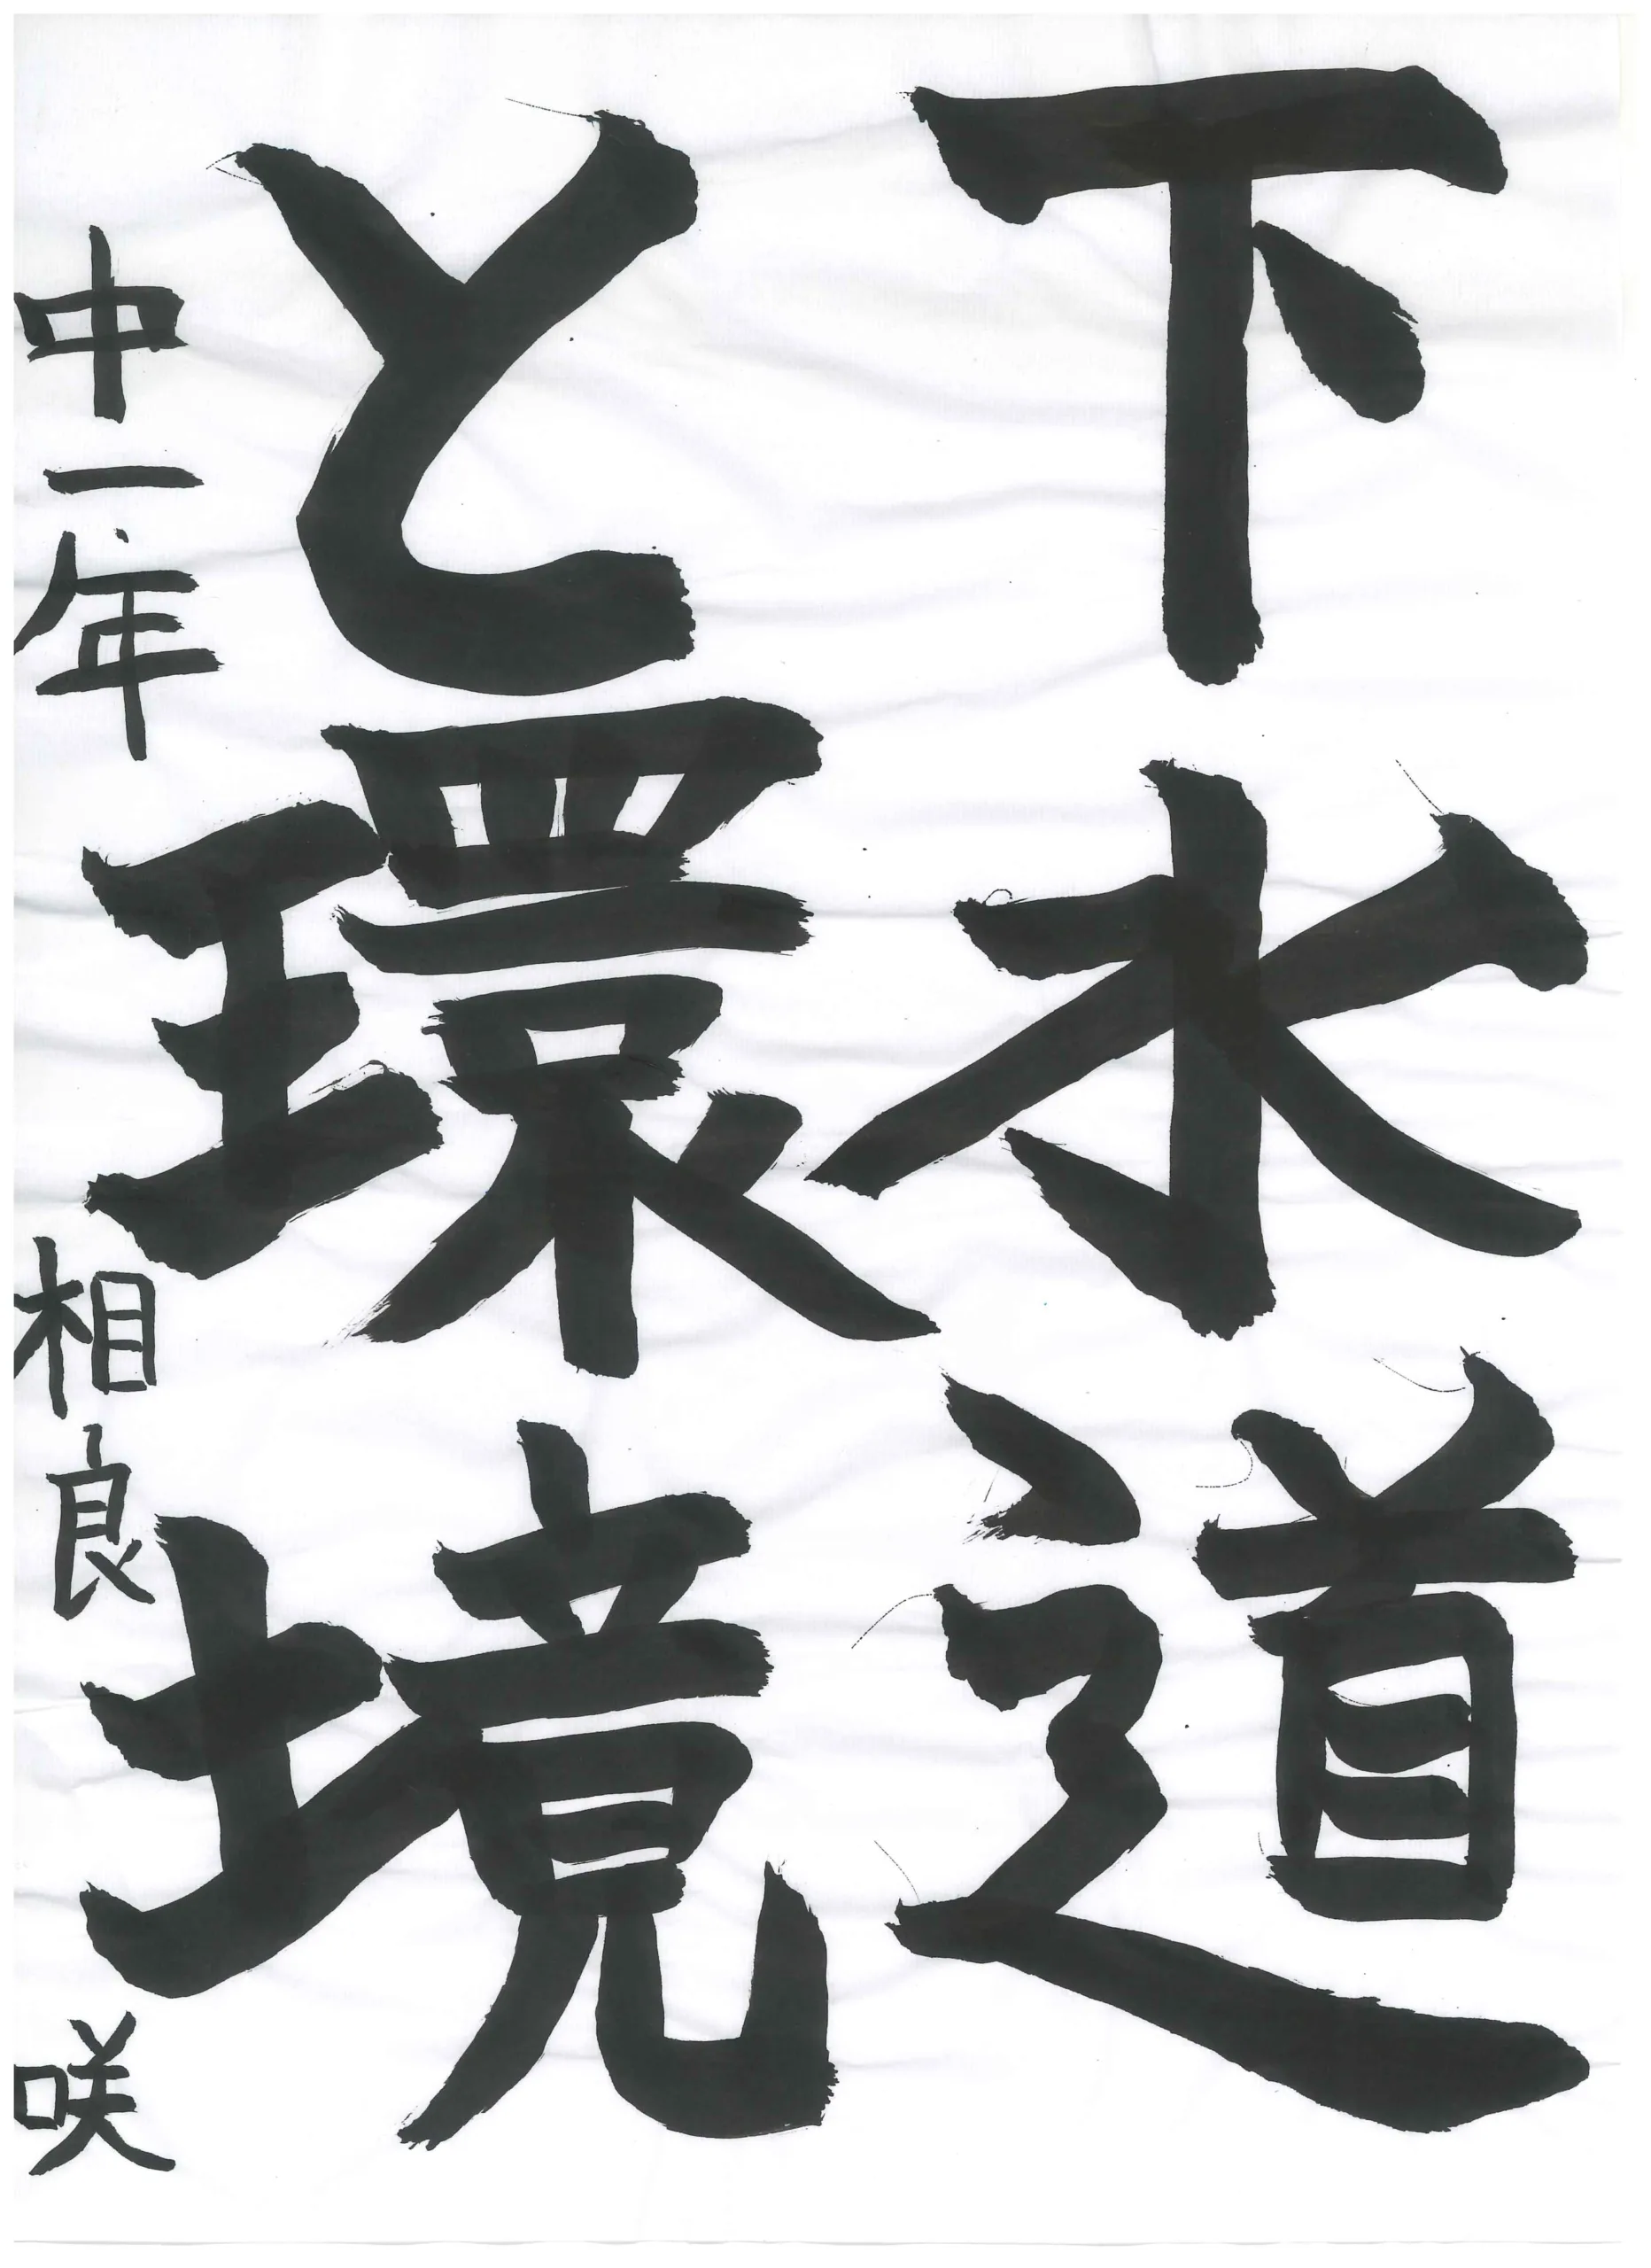 下水道
と環境
中一年 相良 咲